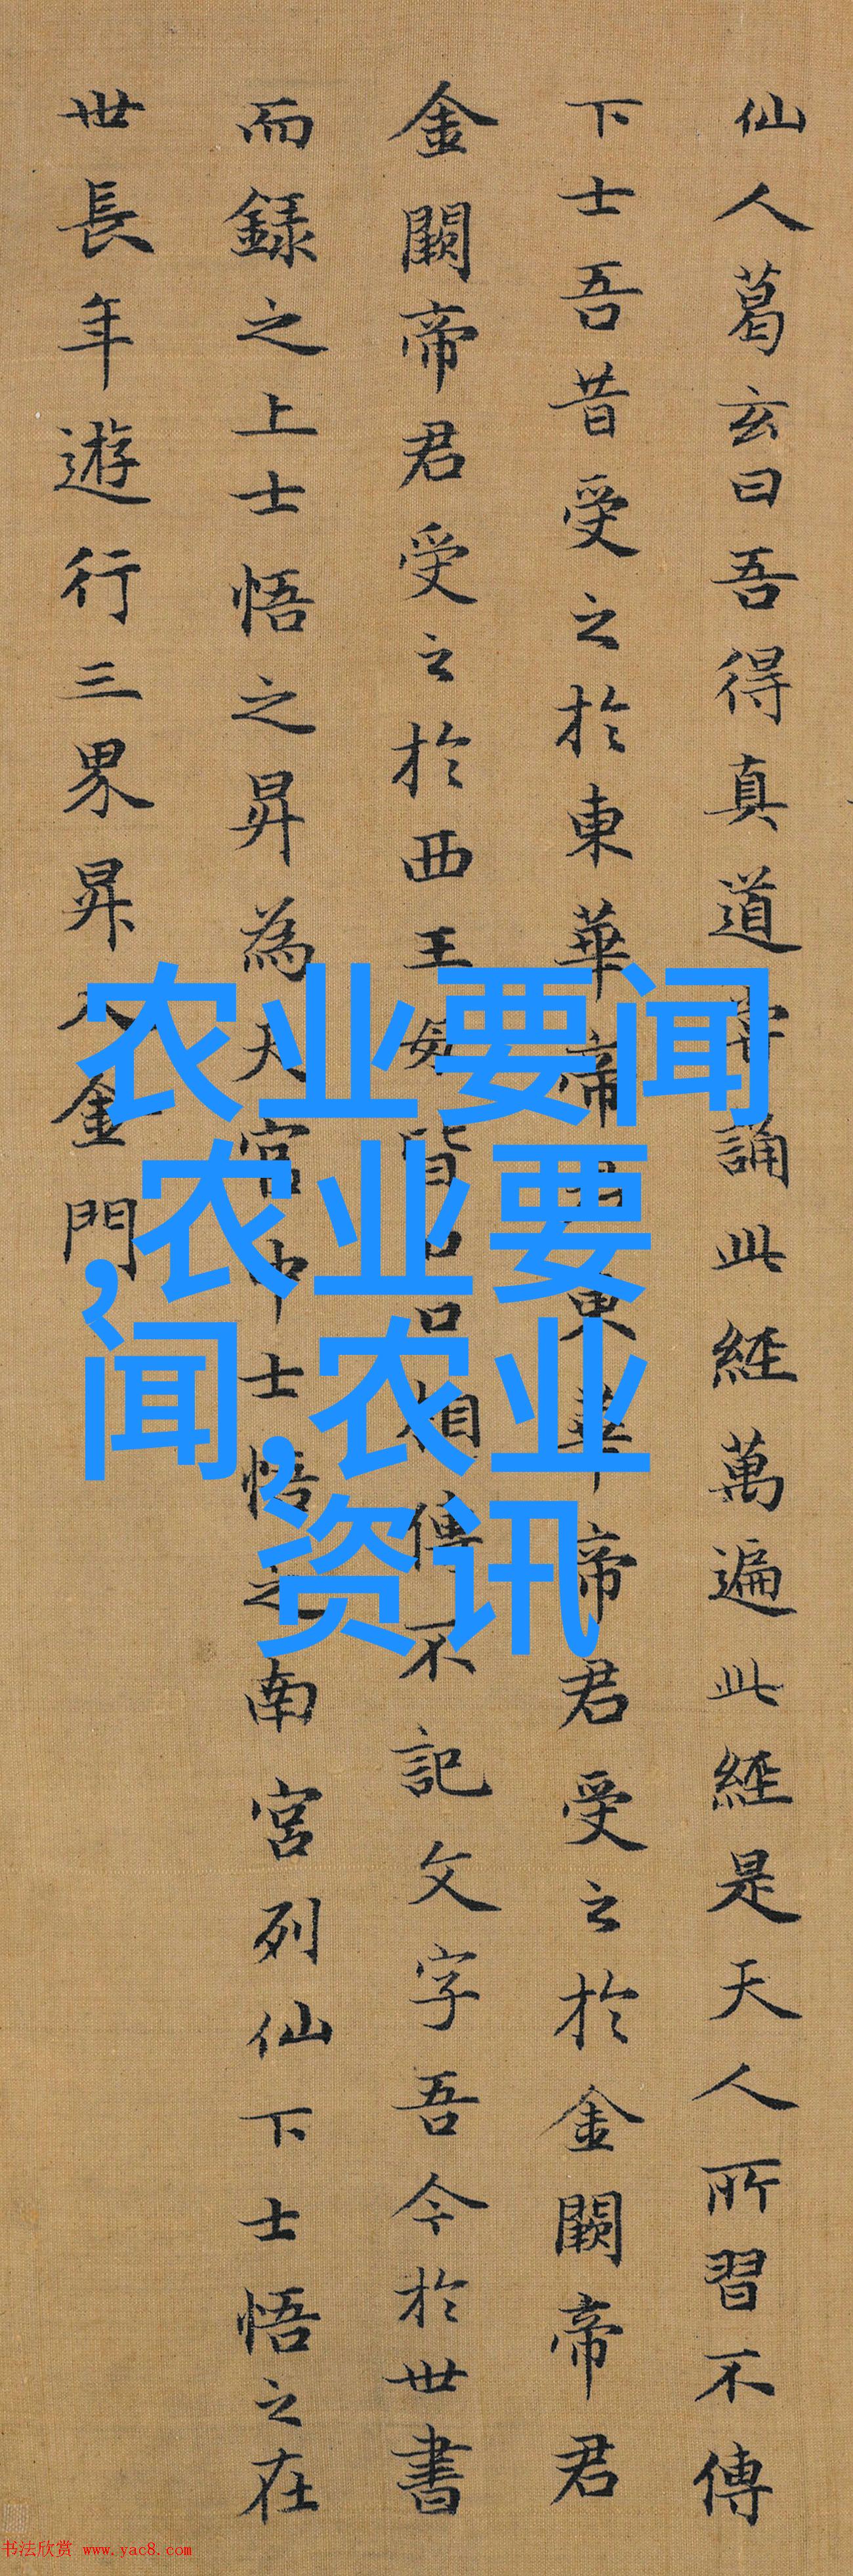 仙人葛玄曰吾得真道誦此經萬遍此經是天人所習不傳
下士吾昔受之於東華帝東華帝君受之於金闕帝君
金闕帝君受之於西王皆相傳不記文字吾今於世書
而錄之上士悟之昇為天官中士悟之南宮列仙下士悟之在
世長年遊行三界昇入金門
农业要闻
,农业要
闻,农业
资讯
书法欣赏 www.yac8.com